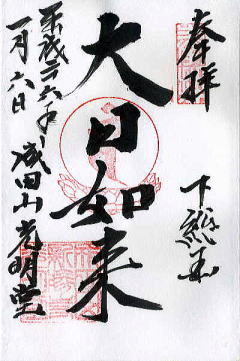 奉拝
下総国
大日如来
平成二六年
一月六日
成田山光明堂